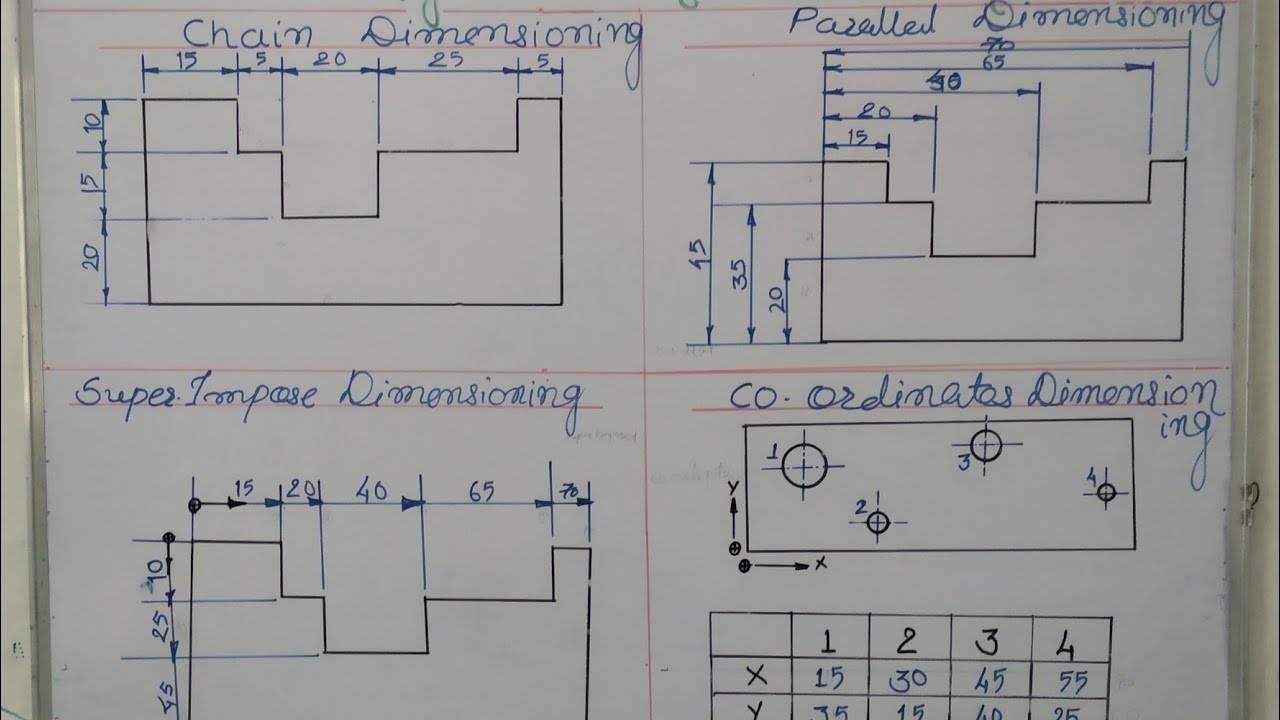 Chain Dimensioning
15 5 20 25 5
10
15
20
Paralled Dimensioning
70
65
40
20
15
45
35
20
Super.Impose Dimensioning
15 20 40 65 70
10
25
45
CO-Ordinates Dimension
ing
1
3
4
2
Y
X
1 2 3 4
X 15 30 45 55
Y 35 15 40 25